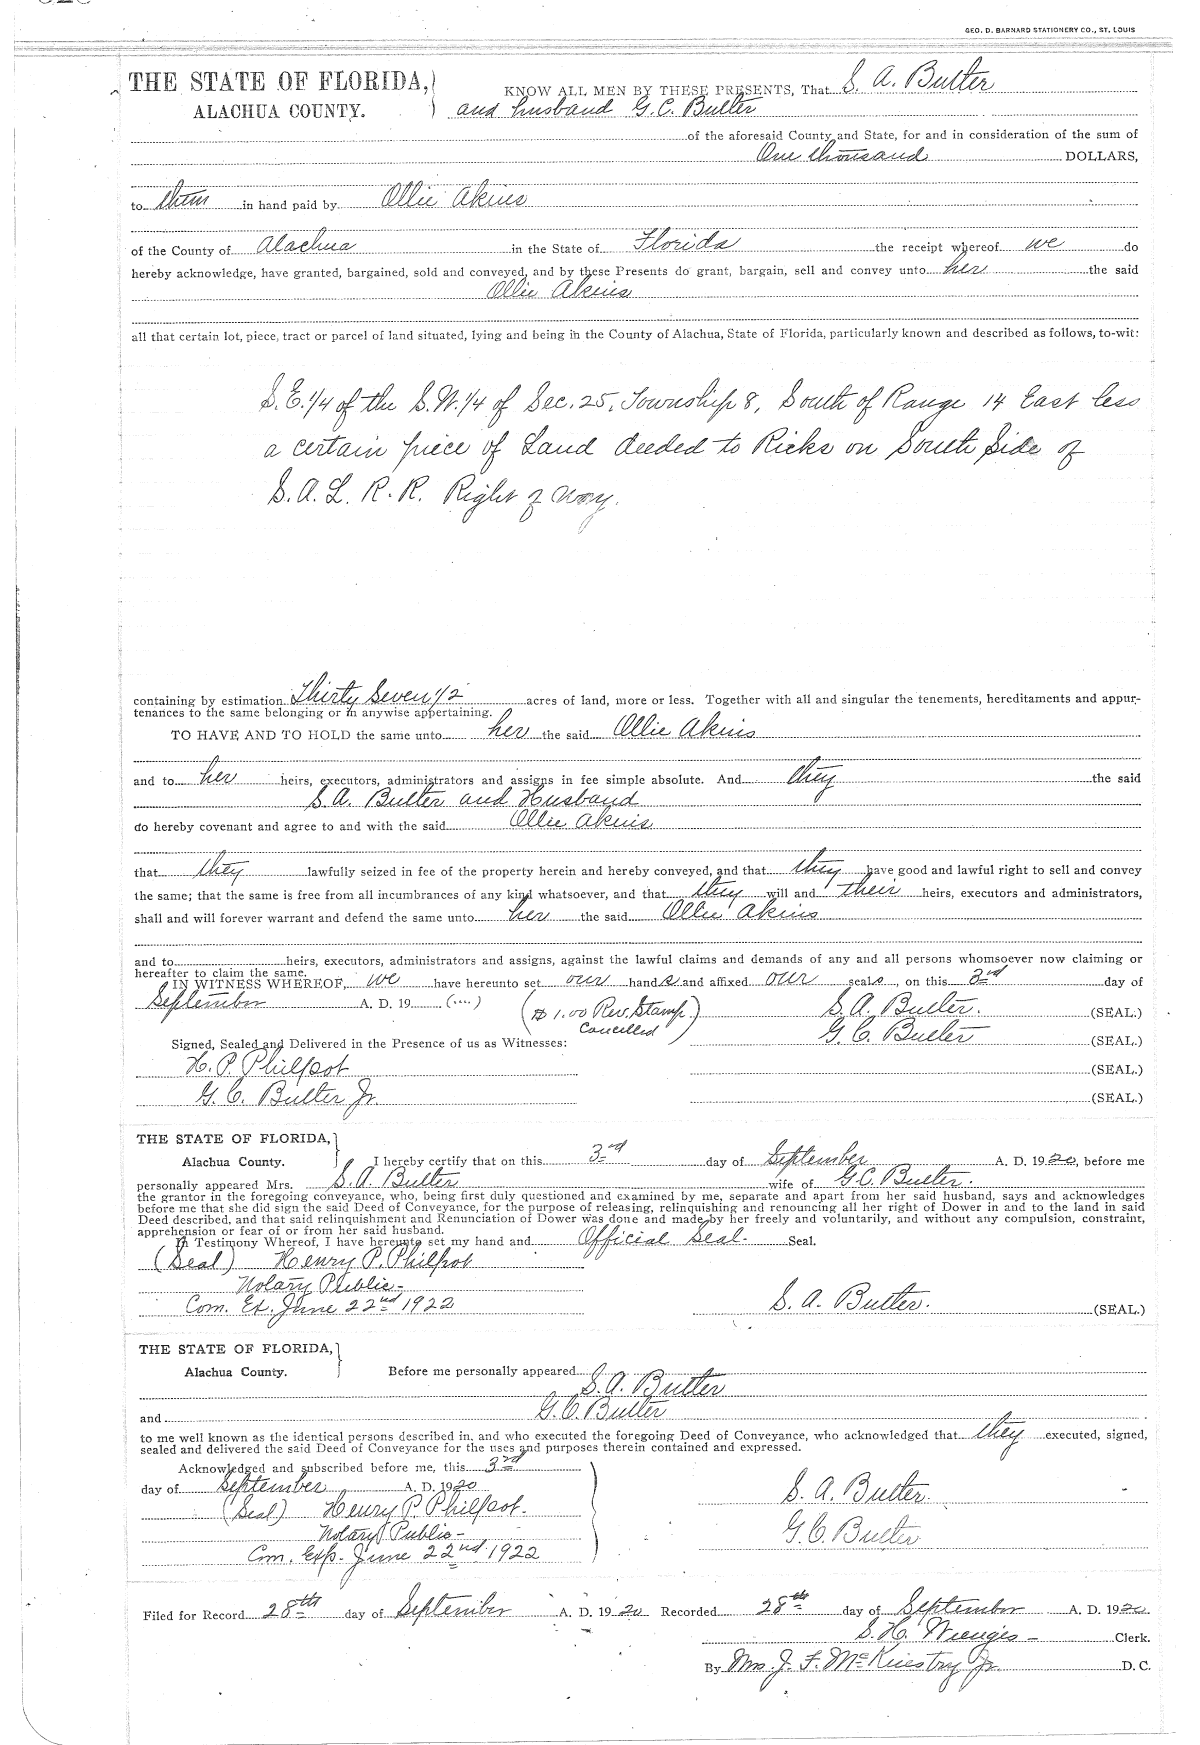 GEO. D. BARNARD STATIONERY CO., ST. LOUIS
THE STATE OF FLORIDA,
ALACHUA COUNTY.
KNOW ALL MEN BY THESE PRESENTS, That S. A. Butler
and husband G. C. Butler
of the aforesaid County and State, for and in consideration of the sum of
One thousand DOLLARS,
to them in hand paid by Ollie Akins
of the County of Alachua in the State of Florida the receipt whereof we do
hereby acknowledge, have granted, bargained, sold and conveyed, and by these Presents do grant, bargain, sell and convey unto her the said
Ollie Akins
all that certain lot, piece, tract or parcel of land situated, lying and being in the County of Alachua, State of Florida, particularly known and described as follows, to-wit:
S.E. 1/4 of the S.W. 1/4 of Sec. 25, Township 8, South of Range 14 East less
a certain piece of Land deeded to Ricks on South Side of
S. A. L. R. R. Right of way.
containing by estimation Thirty Seven 1/2 acres of land, more or less. Together with all and singular the tenements, hereditaments and appur-
tenances to the same belonging or in anywise appertaining.
TO HAVE AND TO HOLD the same unto her the said Ollie Akins
and to her heirs, executors, administrators and assigns in fee simple absolute. And they the said
S. A. Butler and Husband
do hereby covenant and agree to and with the said Ollie Akins
that they lawfully seized in fee of the property herein and hereby conveyed, and that they have good and lawful right to sell and convey
the same; that the same is free from all incumbrances of any kind whatsoever, and that they will and their heirs, executors and administrators,
shall and will forever warrant and defend the same unto her the said Ollie Akins
and to heirs, executors, administrators and assigns, against the lawful claims and demands of any and all persons whomsoever now claiming or
hereafter to claim the same.
IN WITNESS WHEREOF, we have hereunto set our hands and affixed our seals, on this 3rd day of
September A. D. 19 (....) ($1.00 Rev. Stamp. Cancelled) S. A. Butler. (SEAL.)
G. C. Butler (SEAL.)
Signed, Sealed and Delivered in the Presence of us as Witnesses:
H. P. Philpot (SEAL.)
G. C. Butler Jr. (SEAL.)
THE STATE OF FLORIDA,
Alachua County. I hereby certify that on this 3rd day of September A. D. 1920, before me
personally appeared Mrs. S. A. Butler wife of G.C. Butler.
the grantor in the foregoing conveyance, who, being first duly questioned and examined by me, separate and apart from her said husband, says and acknowledges
before me that she did sign the said Deed of Conveyance, for the purpose of releasing, relinquishing and renouncing all her right of Dower in and to the land in said
Deed described, and that said relinquishment and Renunciation of Dower was done and made by her freely and voluntarily, and without any compulsion, constraint,
apprehension or fear of or from her said husband.
In Testimony Whereof, I have hereunto set my hand and Official Seal. Seal.
(Seal) Henry P. Philpot
Notary Public-
Com. Ex. June 22nd 1922 S. A. Butler. (SEAL.)
THE STATE OF FLORIDA,
Alachua County. Before me personally appeared S. A. Butler
and G. C. Butler
to me well known as the identical persons described in, and who executed the foregoing Deed of Conveyance, who acknowledged that they executed, signed,
sealed and delivered the said Deed of Conveyance for the uses and purposes therein contained and expressed.
Acknowledged and subscribed before me, this 3rd
day of September A. D. 1920
S. A. Butler.
(Seal) Henry P. Philpot.
Notary Public-
G. C. Butler
Com. Exp. June 22nd 1922
Filed for Record 28th day of September A. D. 1920 Recorded 28th day of September A. D. 1920
S. H. Wienges - Clerk.
By Mrs. J. F. McKinstry Jr. D. C.